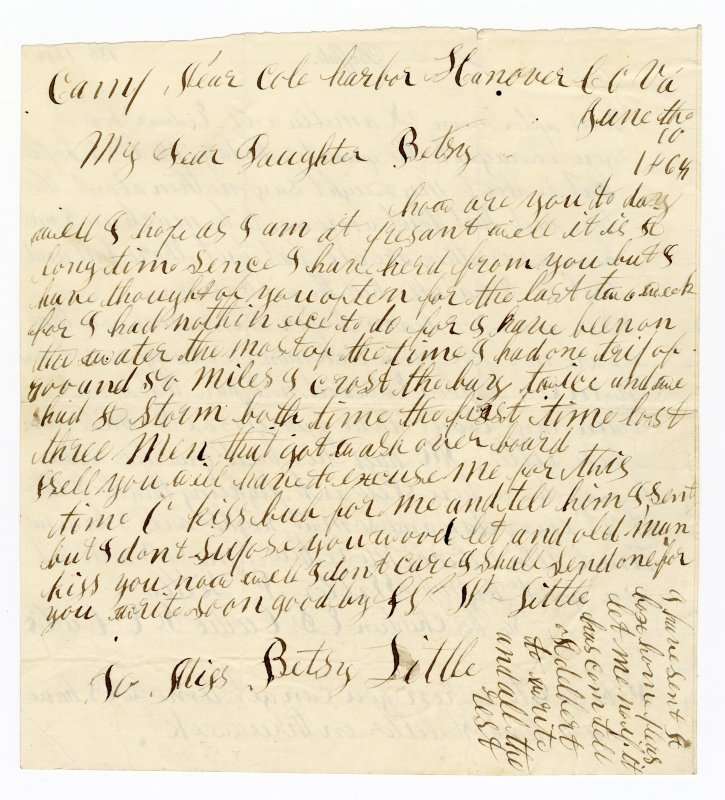 Camp Near Cole harbor Hanover C O Va
June the
10
1864
My Dear Daughter Betsy
how are you to day
well I hope as I am at presant well it is a
long time sence I have herd from you but I
have thought of you often for the last two week
for I had nothin elce to do for I have been on
the water the most of the time I had one trip of
700 and 50 Miles I crost the bay twice and we
had a Storm both time the first time lost
three Men that got wash over board
well you will have to excuse Me for this
time kiss bub for me and tell him I sent
but I dont supose you wood let and old man
kiss you now well I dont care I shall send one for
you write soon good by Little
To Miss Betsy Little
I have sent a
box home pleas
let me noy if it
has com tell
Adelbert
to write
and all the
rest